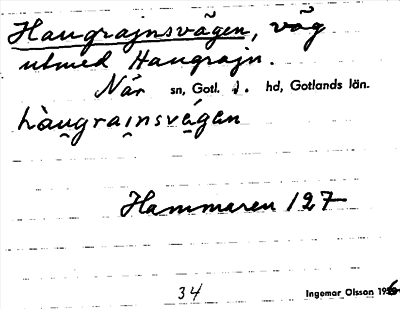 Haugrajnsvägen, väg
utmed Haugrajn.
När sn, Gotl. s. hd, Gotlands län.
hàu̯grai̯nsvę́gan
Hammaren 127
34 Ingemar Olsson 1946